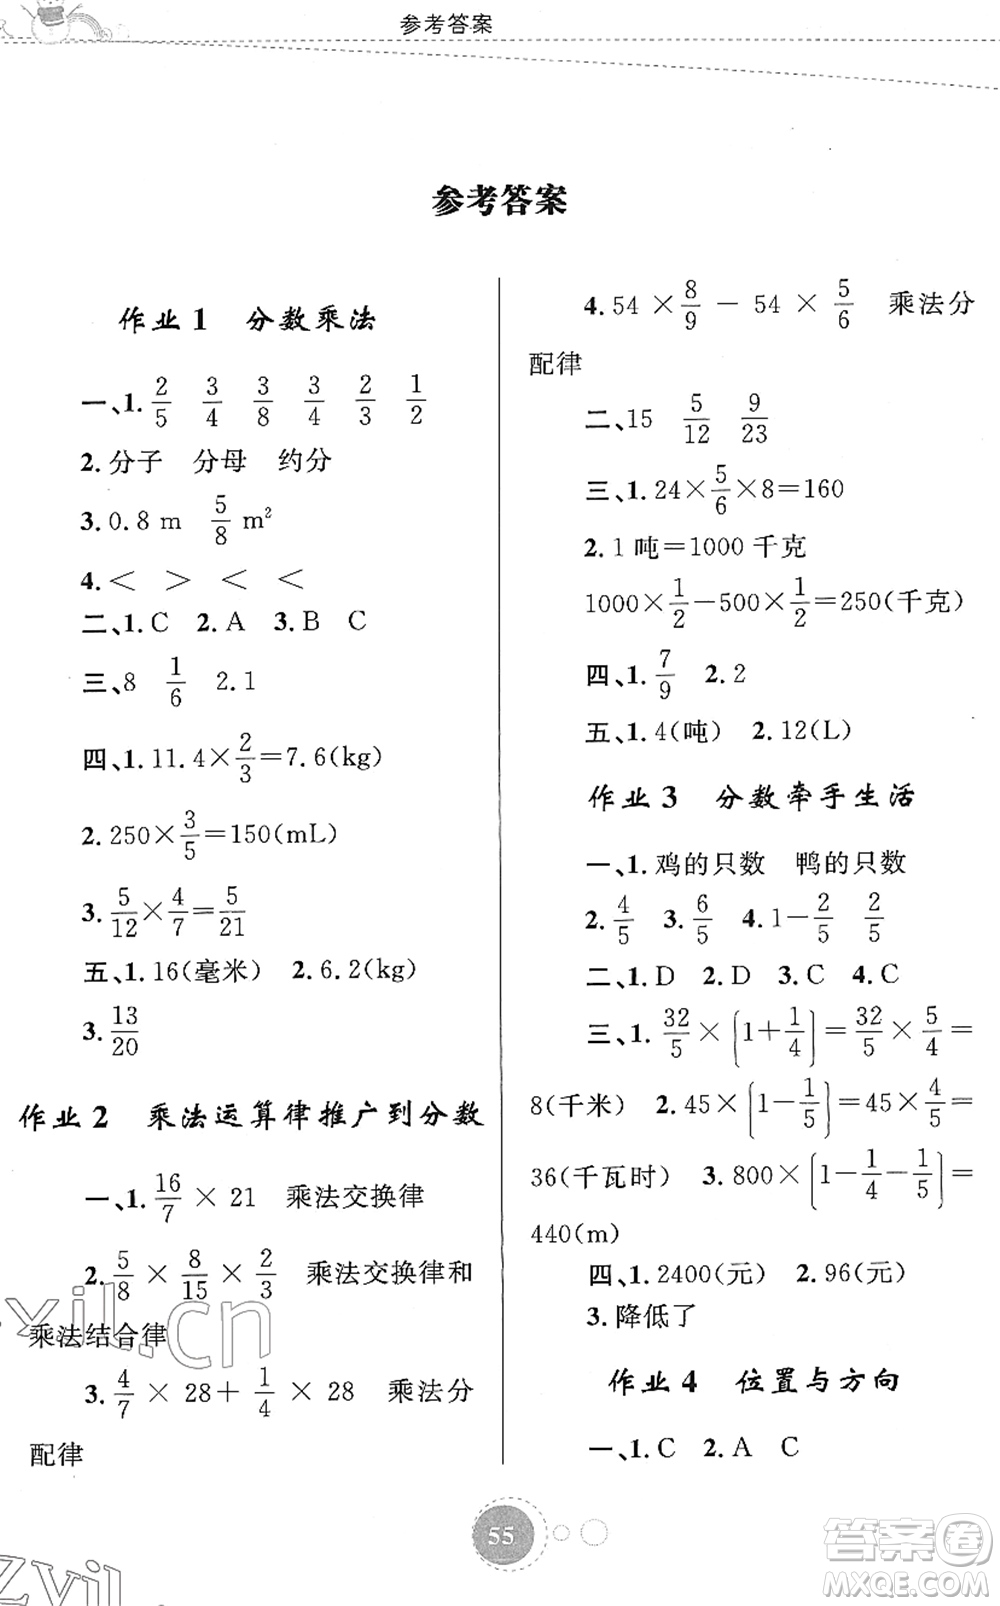 参考答案
参考答案
作业1 分数乘法
一、1. 2/5 3/4 3/8 3/4 2/3 1/2
2.分子 分母 约分
3.0.8 m 5/8 m²
4.< > < <
二、1.C 2.A 3.B C
三、8 1/6 2.1
四、1.11.4×2/3=7.6(kg)
2.250×3/5=150(mL)
3. 5/12×4/7=5/21
五、1.16(毫米) 2.6.2(kg)
3. 13/20
作业2 乘法运算律推广到分数
一、1. 16/7 × 21 乘法交换律
2. 5/8 × 8/15 × 2/3 乘法交换律和
乘法结合律
3. 4/7 × 28 + 1/4 × 28 乘法分
配律
4.54 × 8/9 - 54 × 5/6 乘法分
配律
二、15 5/12 9/23
三、1.24×5/6×8=160
2.1吨=1000千克
1000×1/2-500×1/2=250(千克)
四、1. 7/9 2.2
五、1.4(吨) 2.12(L)
作业3 分数牵手生活
一、1.鸡的只数 鸭的只数
2. 4/5 3. 6/5 4.1-2/5 2/5
二、1.D 2.D 3.C 4.C
三、1. 32/5×(1+1/4)=32/5×5/4=
8(千米) 2.45×(1-1/5)=45×4/5=
36(千瓦时) 3.800×(1-1/4-1/5)=
440(m)
四、1.2400(元) 2.96(元)
3.降低了
作业4 位置与方向
一、1.C 2.A C
55
zyil.cn
Zyil
答案圈
MXQE.COM